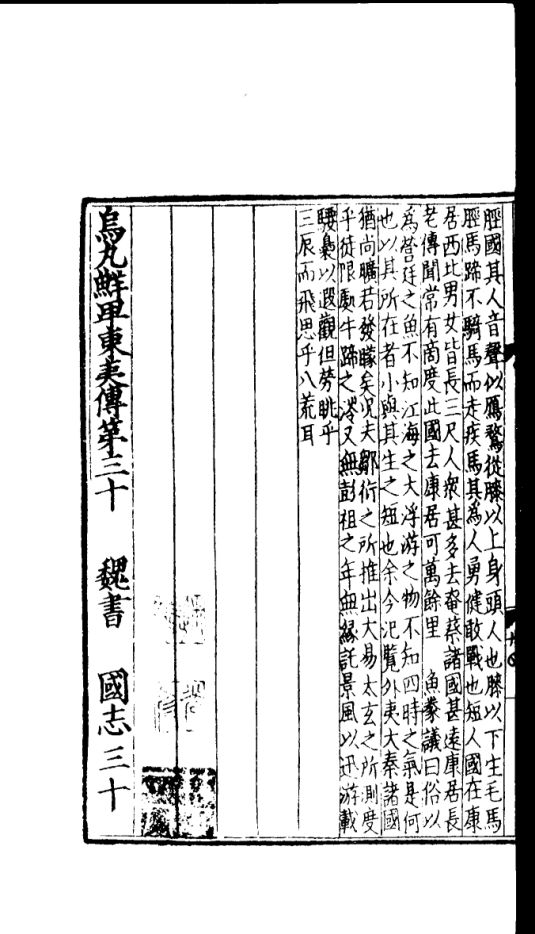 脛國其人音聲似鴈鶩從膝以上身頭人也膝以下生毛馬
脛馬蹄不騎馬而走疾馬其為人勇健敢戰也短人國在康
居西北男女皆長三尺人衆甚多去奄蔡諸國甚遠康居長
老傳聞常有商度此國去康居可萬餘里 魚豢議曰俗以
為營廷之魚不知江海之大浮游之物不知四時之氣是何
也以其所在者小與其生之短也余今氾覽外夷大秦諸國
猶尚曠若發矇矣况夫鄒衍之所推出大易太玄之所測度
乎徒限處牛蹄之涔又無彭祖之年無緣託景風以迅游載
騕褭以遐觀但勞眺乎
三辰而飛思乎八荒耳
烏丸鮮卑東夷傳第三十 魏書 國志三十